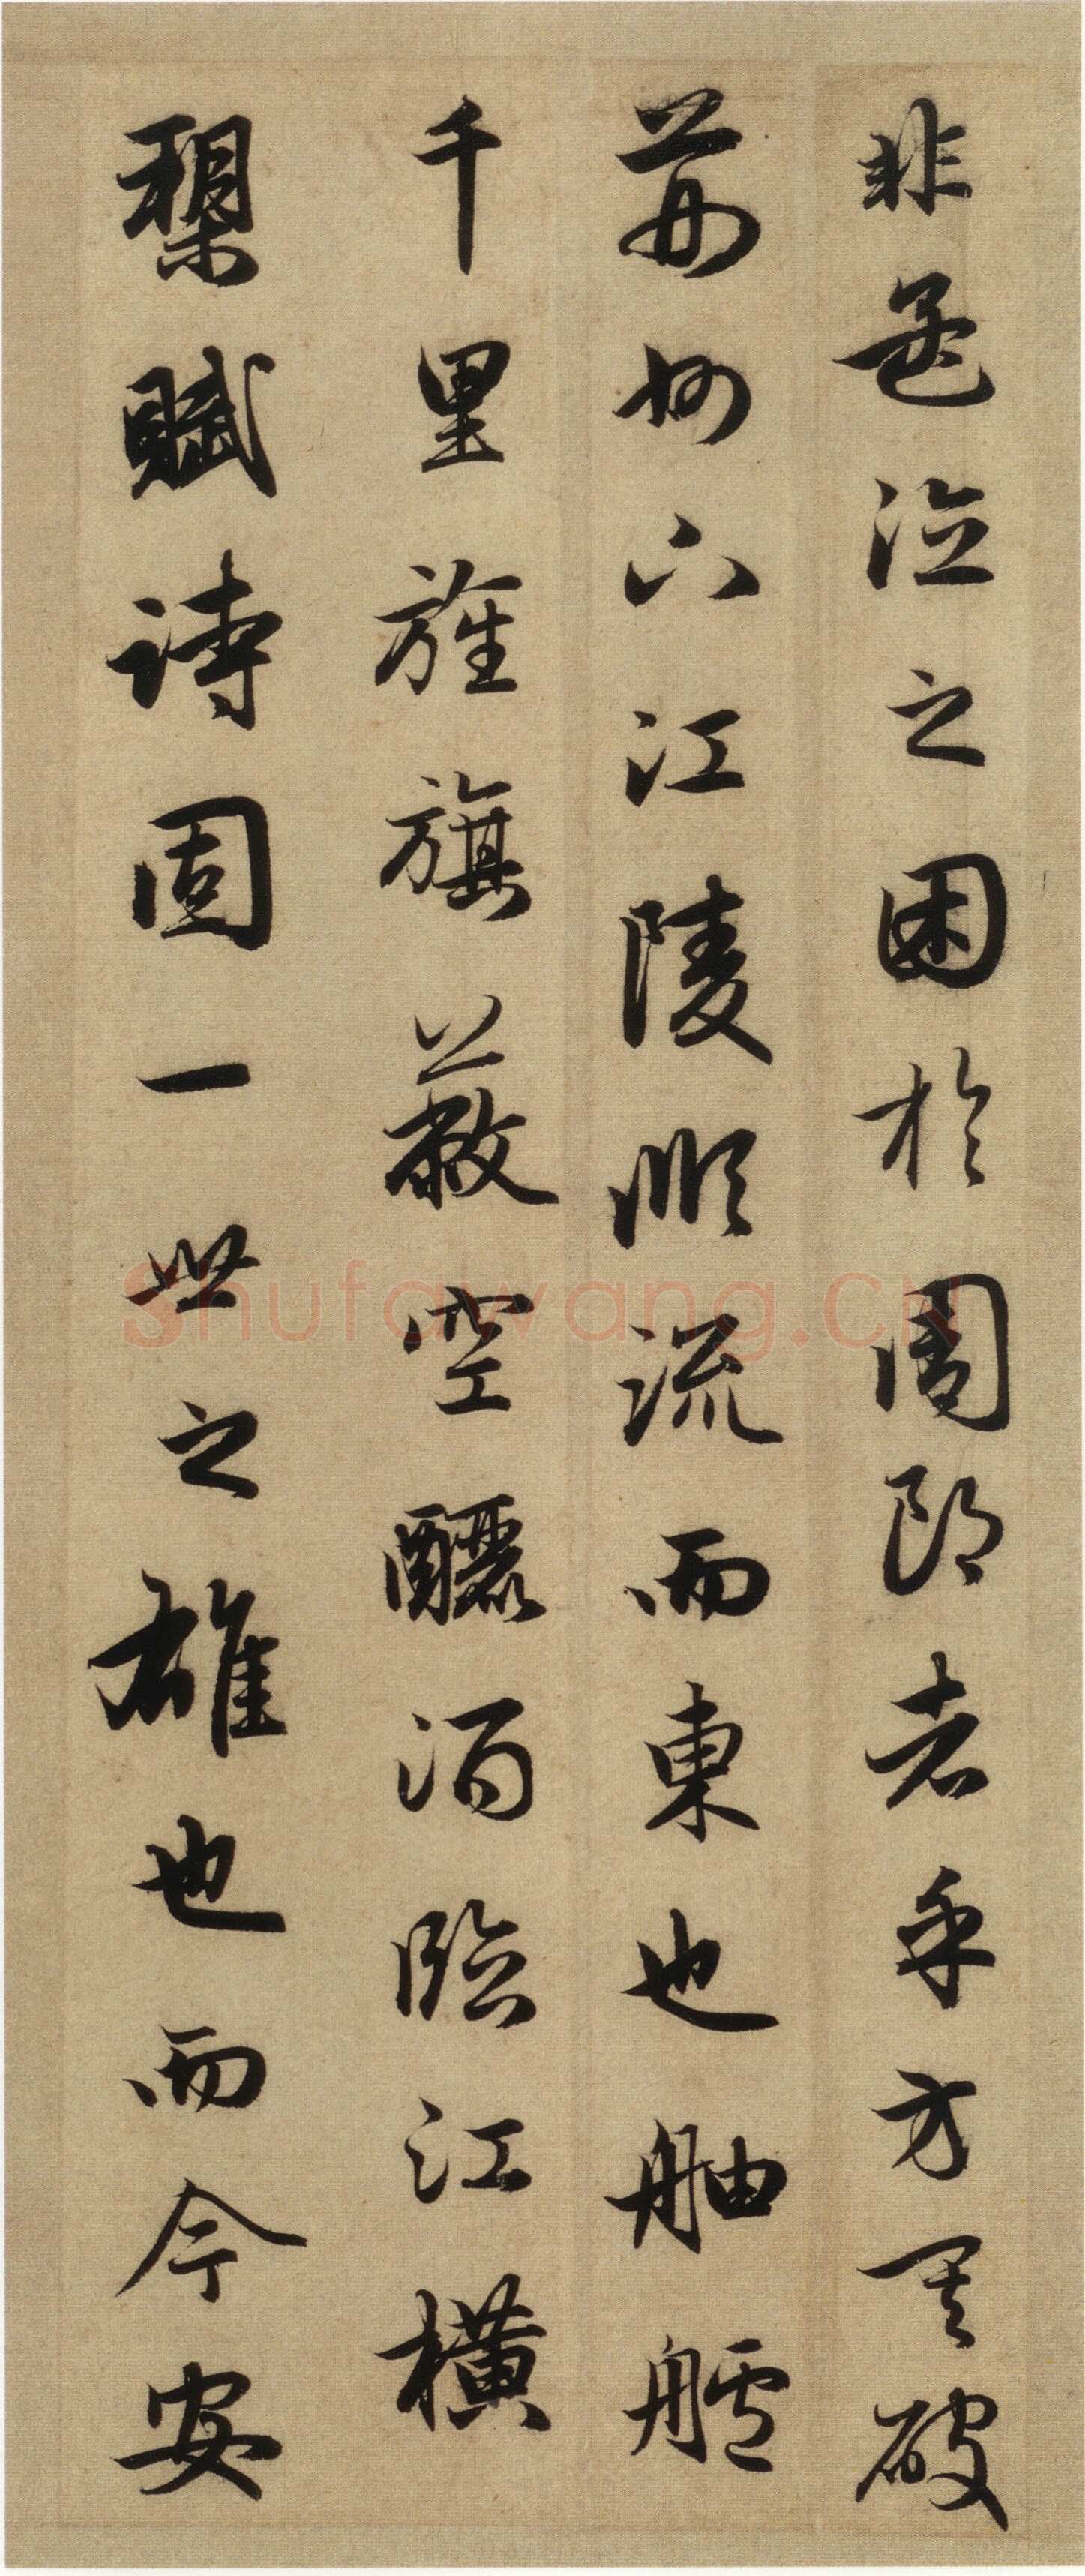 非孟德之困於周郎者乎方其破
荊州下江陵順流而東也舳艫
千里旌旗蔽空釃酒臨江橫
槊賦詩固一世之雄也而今安
Shufawang.cn